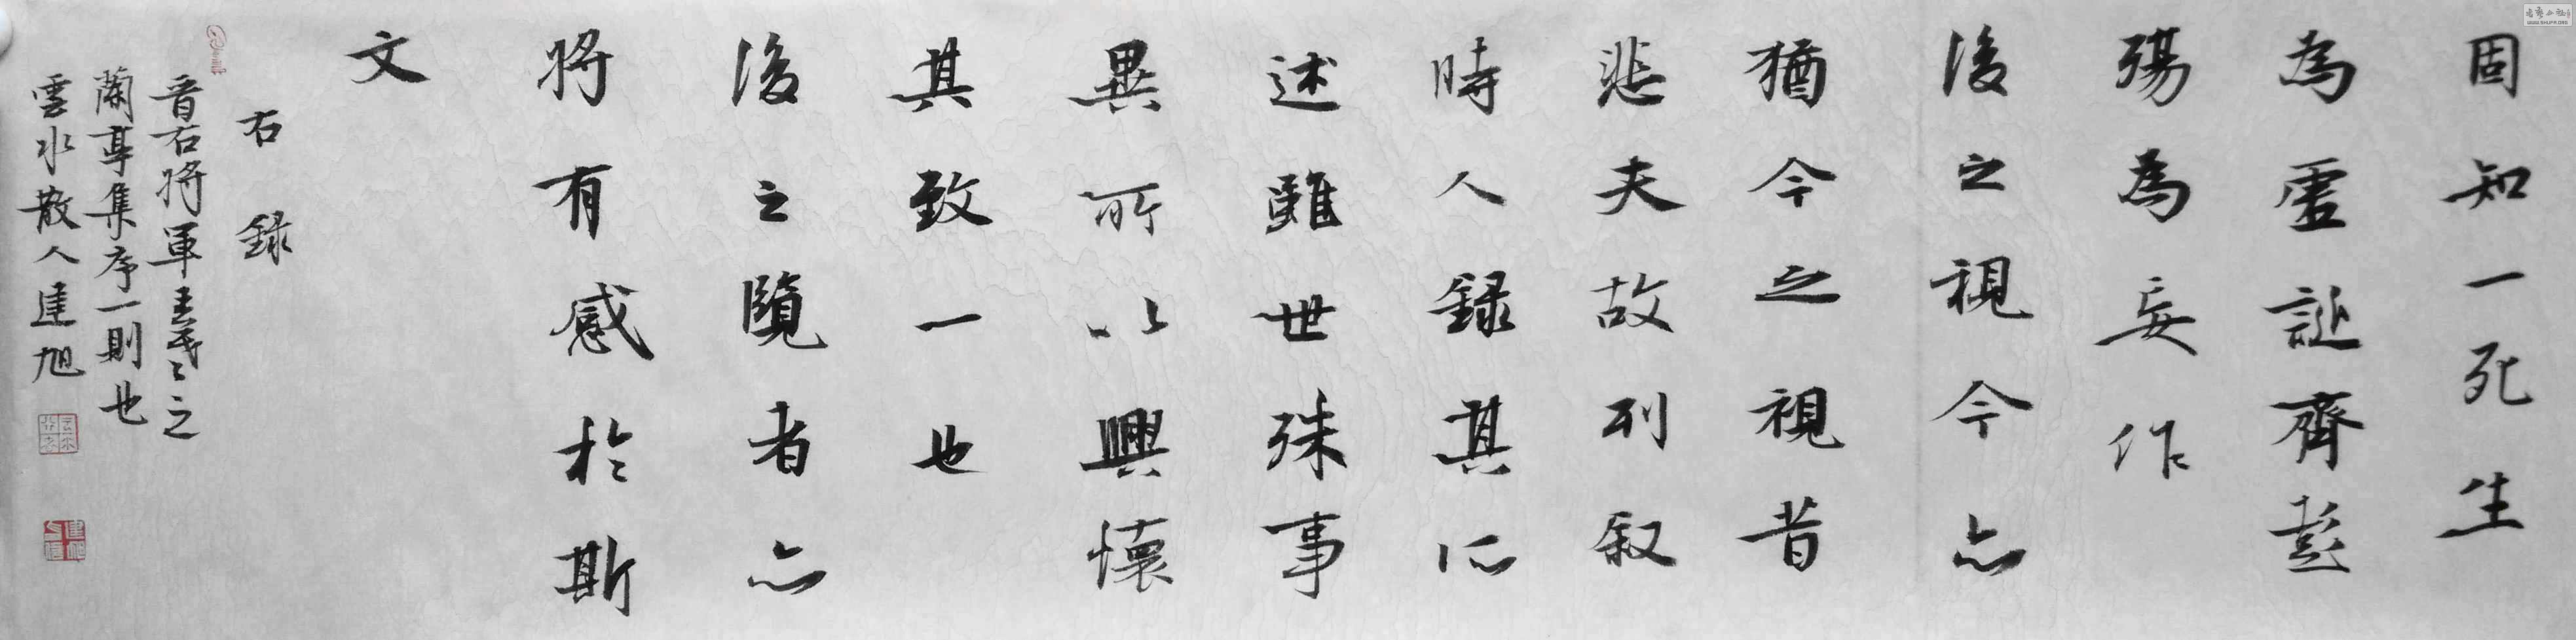 固知一死生
為虛誕齊彭
殤為妄作
後之視今亦
猶今之視昔
悲夫故列叙
時人錄其所
述雖世殊事
異所以興懷
其致一也
後之覽者亦
將有感於斯
文
右錄
晉右將軍王羲之
蘭亭集序一則也
雲水散人建旭
WWW.SHUFA.ORG